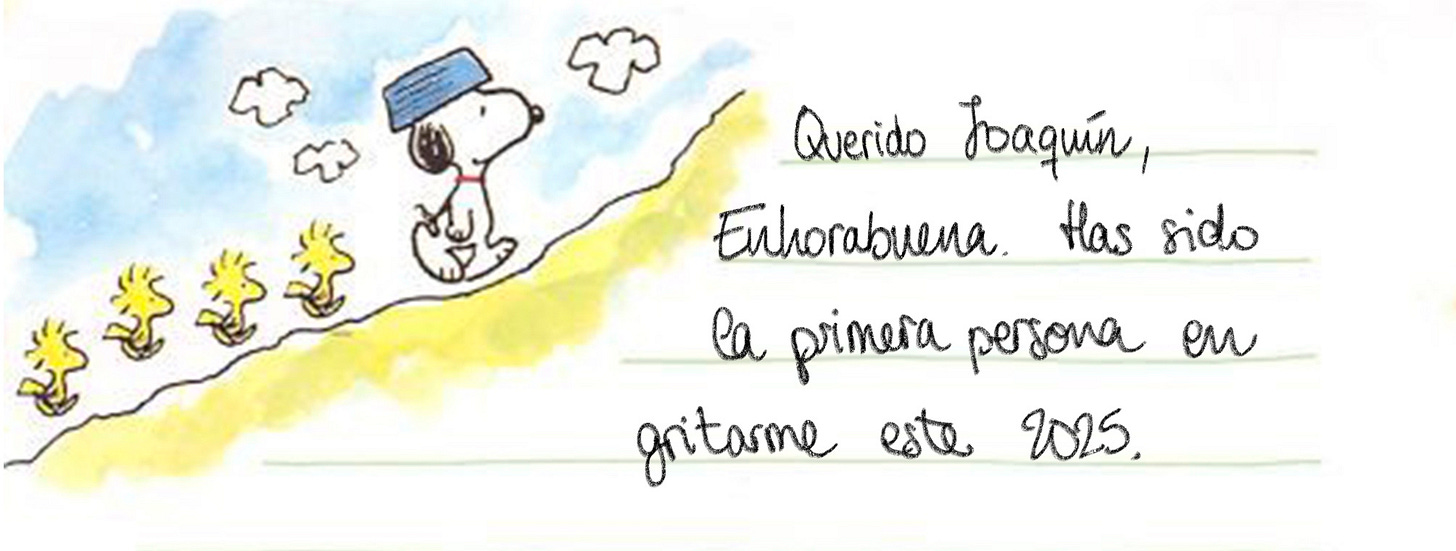 Querido Joaquín,
Enhorabuena. Has sido
la primera persona en
gritarme este 2025.